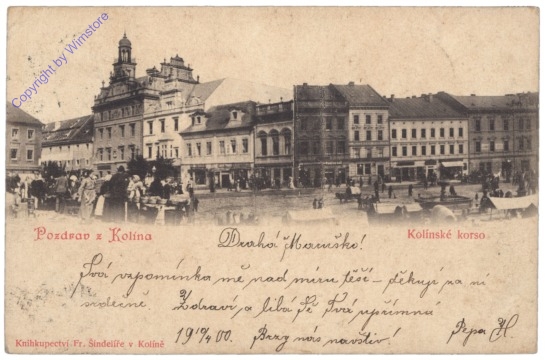 Copyright by Wimstore
Pozdrav z Kolína
Kolínské korso
Drahá Maruško!
Tvá vzpomínka mě nad míru těší – děkuji za ni
srdečně. Zdraví a líbá Tě Tvá upřímná
19 10/4 00. Brzy nás navštiv! Pepa H.
Knihkupectví Fr. Šindelíře v Kolíně